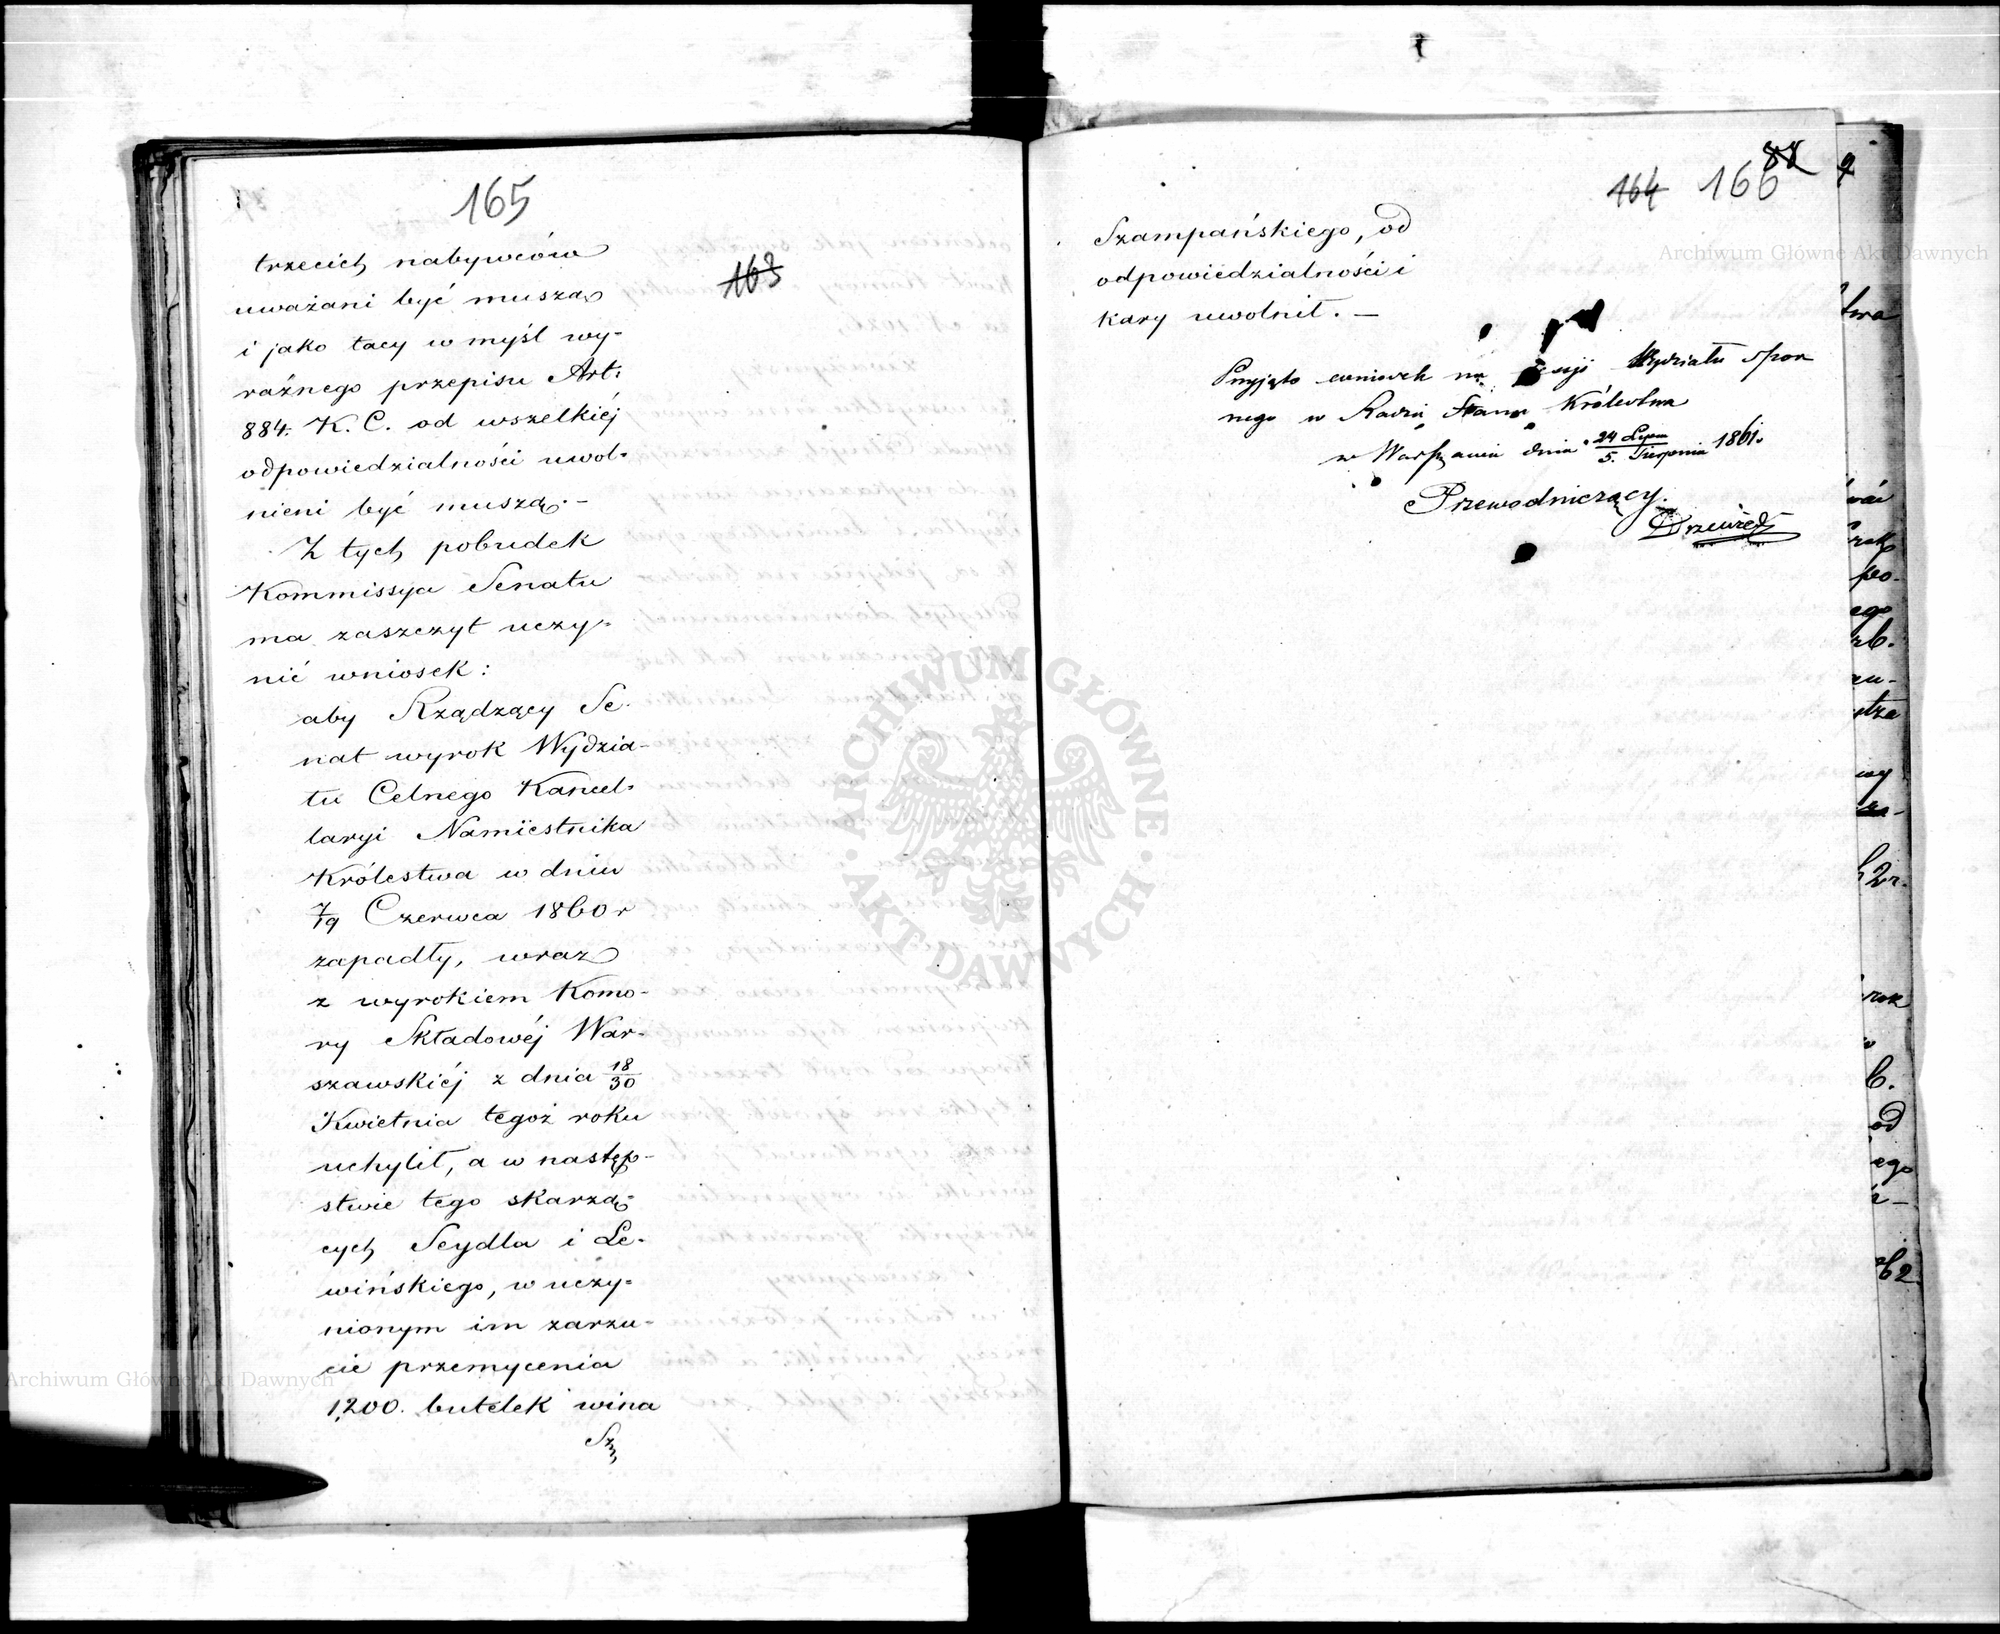 165
163
trzecich nabywców
uważani być muszą
i jako tacy w myśl wy-
raźnego przepisu Art:
884. K. C. od wszelkiéj
odpowiedzialności uwol-
nieni być muszą. –
Z tych pobudek
Kommissya Senatu
ma zaszczyt uczy-
nić wniosek:
aby Rządzący Se-
nat wyrok Wydzia-
łu Celnego Kancel-
laryi Namiestnika
Królestwa w dniu
7/19 Czerwca 1860 r
zapadły, wraz
z wyrokiem Komo-
ry Składowéj War-
szawskiéj z dnia 18/30
Kwietnia tegoż roku
uchylił, a w następ-
stwie tego skarżą-
cych Seydla i Le-
wińskiego, w uczy-
nionym im zarzu-
cie przemycenia
1,200. butelek wina
Sz
88
164 166
Szampańskiego, od
odpowiedzialności i
kary uwolnił. —
Przyjęto wniosek na sesyi Wydziału Spor
nego w Radzie Stanu Królestwa
w Warszawie dnia 24 Lipca/5. Sierpnia 1861.
Przewodniczący.
Drzewiecki
ARCHIWUM GŁÓWNE AKT DAWNYCH
Archiwum Główne Akt Dawnych
Archiwum Główne Akt Dawnych